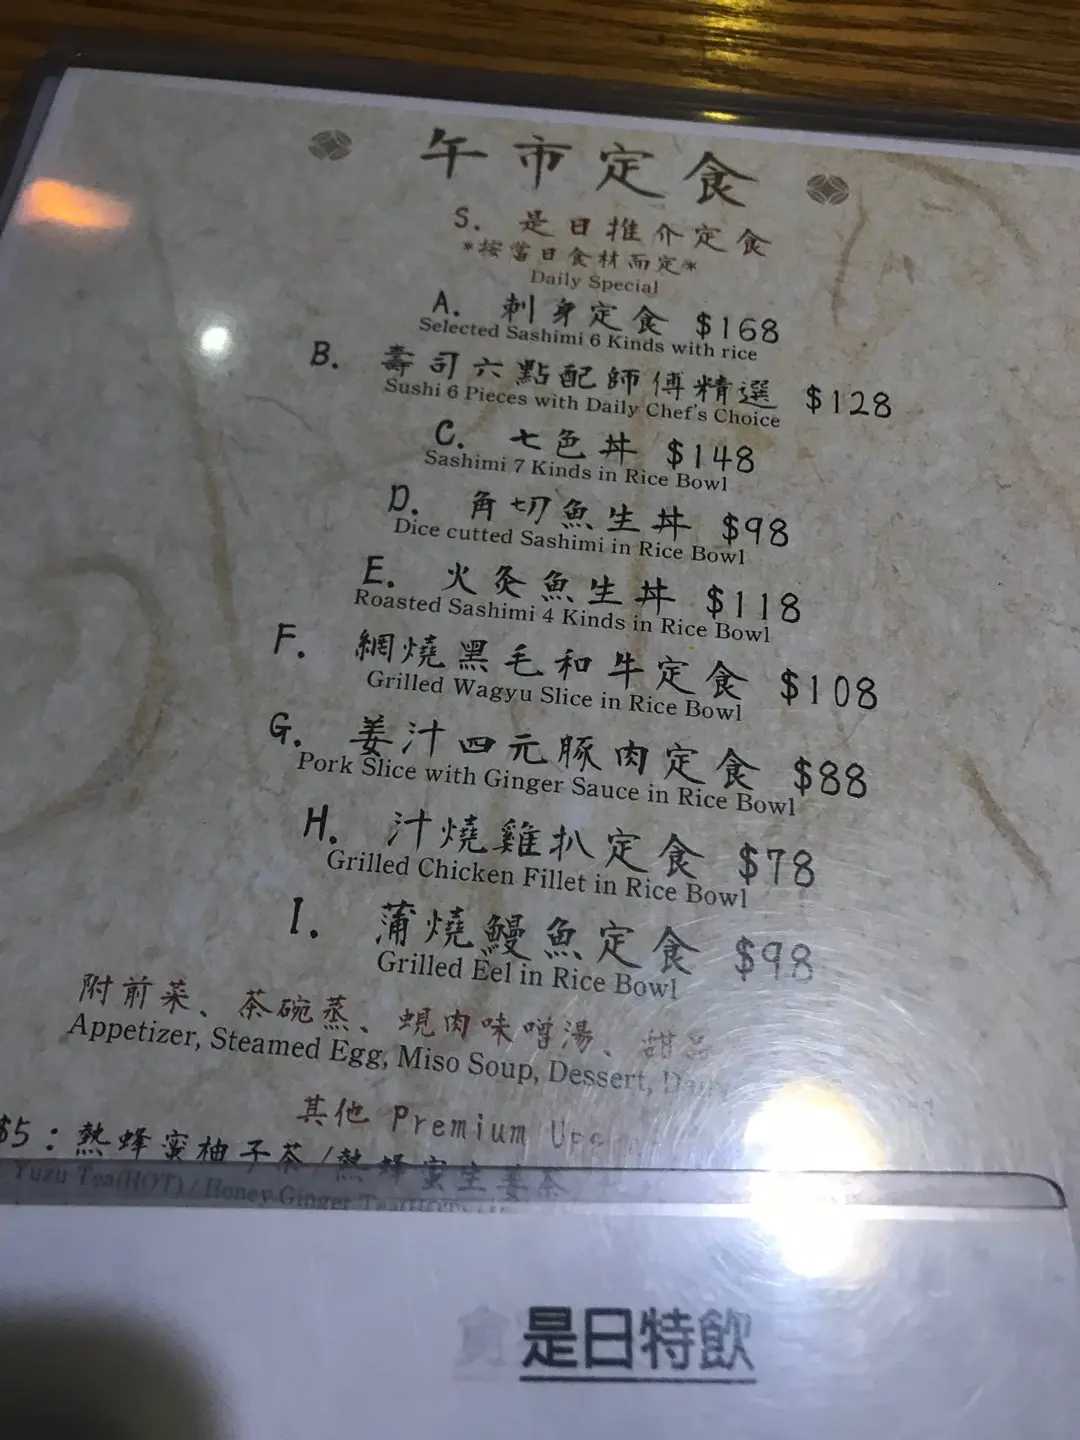 午市定食
S. 是日推介定食
*按當日食材而定*
Daily Special
A. 刺身定食 $168
Selected Sashimi 6 Kinds with rice
B. 壽司六點配師傅精選 $128
Sushi 6 Pieces with Daily Chef's Choice
C. 七色丼 $148
Sashimi 7 Kinds in Rice Bowl
D. 角切魚生丼 $98
Dice cutted Sashimi in Rice Bowl
E. 火灸魚生丼 $118
Roasted Sashimi 4 Kinds in Rice Bowl
F. 網燒黑毛和牛定食 $108
Grilled Wagyu Slice in Rice Bowl
G. 姜汁四元豚肉定食 $88
Pork Slice with Ginger Sauce in Rice Bowl
H. 汁燒雞扒定食 $78
Grilled Chicken Fillet in Rice Bowl
I. 蒲燒鰻魚定食 $98
Grilled Eel in Rice Bowl
附前菜、茶碗蒸、蜆肉味噌湯、甜品
Appetizer, Steamed Egg, Miso Soup, Dessert,
其他 Premium
$5：熱蜂蜜柚子茶/熱蜂蜜生姜茶
Yuzu Tea(HOT) / Honey Ginger Tea(HOT)
是日特飲